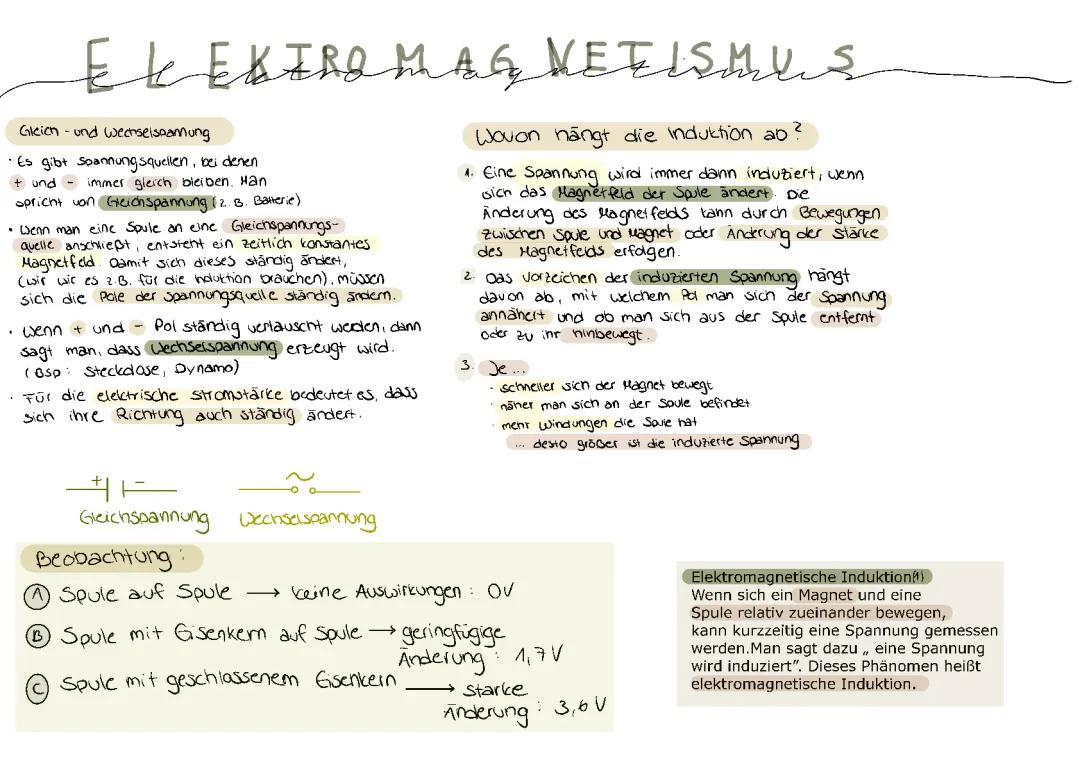 ELEKTROMAGNETISMUS
elektromagnetismus
Gleich- und Wechselspannung
· Es gibt Spannungsquellen, bei denen
+ und - immer gleich bleiben. Man
spricht von Gleichspannung (z.B. Batterie)
· Wenn man eine Spule an eine Gleichspannungs-
quelle anschließt, entsteht ein zeitlich konstantes
Magnetfeld. Damit sich dieses ständig ändert,
(wir wir es z.B. für die Induktion brauchen), müssen
sich die Pole der Spannungsquelle ständig ändern.
· Wenn + und - Pol ständig vertauscht werden, dann
sagt man, dass Wechselspannung erzeugt wird.
(Bsp: Steckdose, Dynamo)
· Für die elektrische Stromstärke bedeutet es, dass
sich ihre Richtung auch ständig ändert.
+ -
Gleichspannung Wechselspannung
Beobachtung:
A Spule auf Spule → keine Auswirkungen: 0V
B Spule mit Eisenkern auf Spule → geringfügige
Änderung: 1,7V
C Spule mit geschlossenem Eisenkern → starke
Änderung: 3,6V
Wovon hängt die Induktion ab?
1. Eine Spannung wird immer dann induziert, wenn
sich das Magnetfeld der Spule ändert. Die
Änderung des Magnetfelds kann durch Bewegungen
zwischen Spule und Magnet oder Änderung der Stärke
des Magnetfelds erfolgen.
2. Das Vorzeichen der induzierten Spannung hängt
davon ab, mit welchem Pol man sich der Spannung
annähert und ob man sich aus der Spule entfernt
oder zu ihr hinbewegt.
3. Je ...
· schneller sich der Magnet bewegt
· näher man sich an der Spule befindet
· mehr Windungen die Spule hat
... desto größer ist die induzierte Spannung
Elektromagnetische Induktion(1)
Wenn sich ein Magnet und eine
Spule relativ zueinander bewegen,
kann kurzzeitig eine Spannung gemessen
werden.Man sagt dazu „ eine Spannung
wird induziert". Dieses Phänomen heißt
elektromagnetische Induktion.